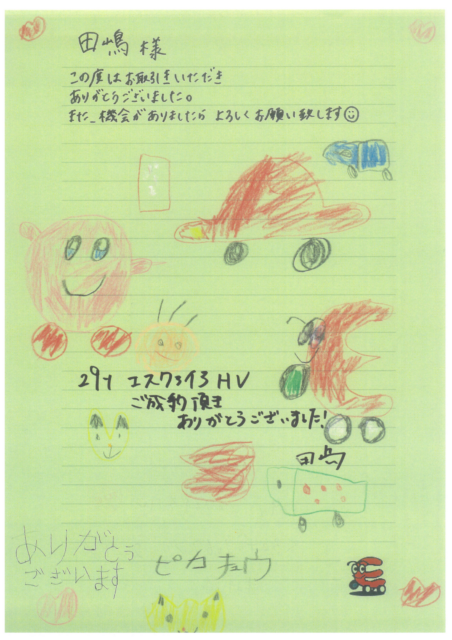 田嶋様
この度はお取引きいただき
ありがとうございました。
また、機会がありましたら よろしくお願い致します
29y エスクァイア HV
ご成約頂き
ありがとうございました!
田嶋
ありがとう
ございます
ピカチュウ